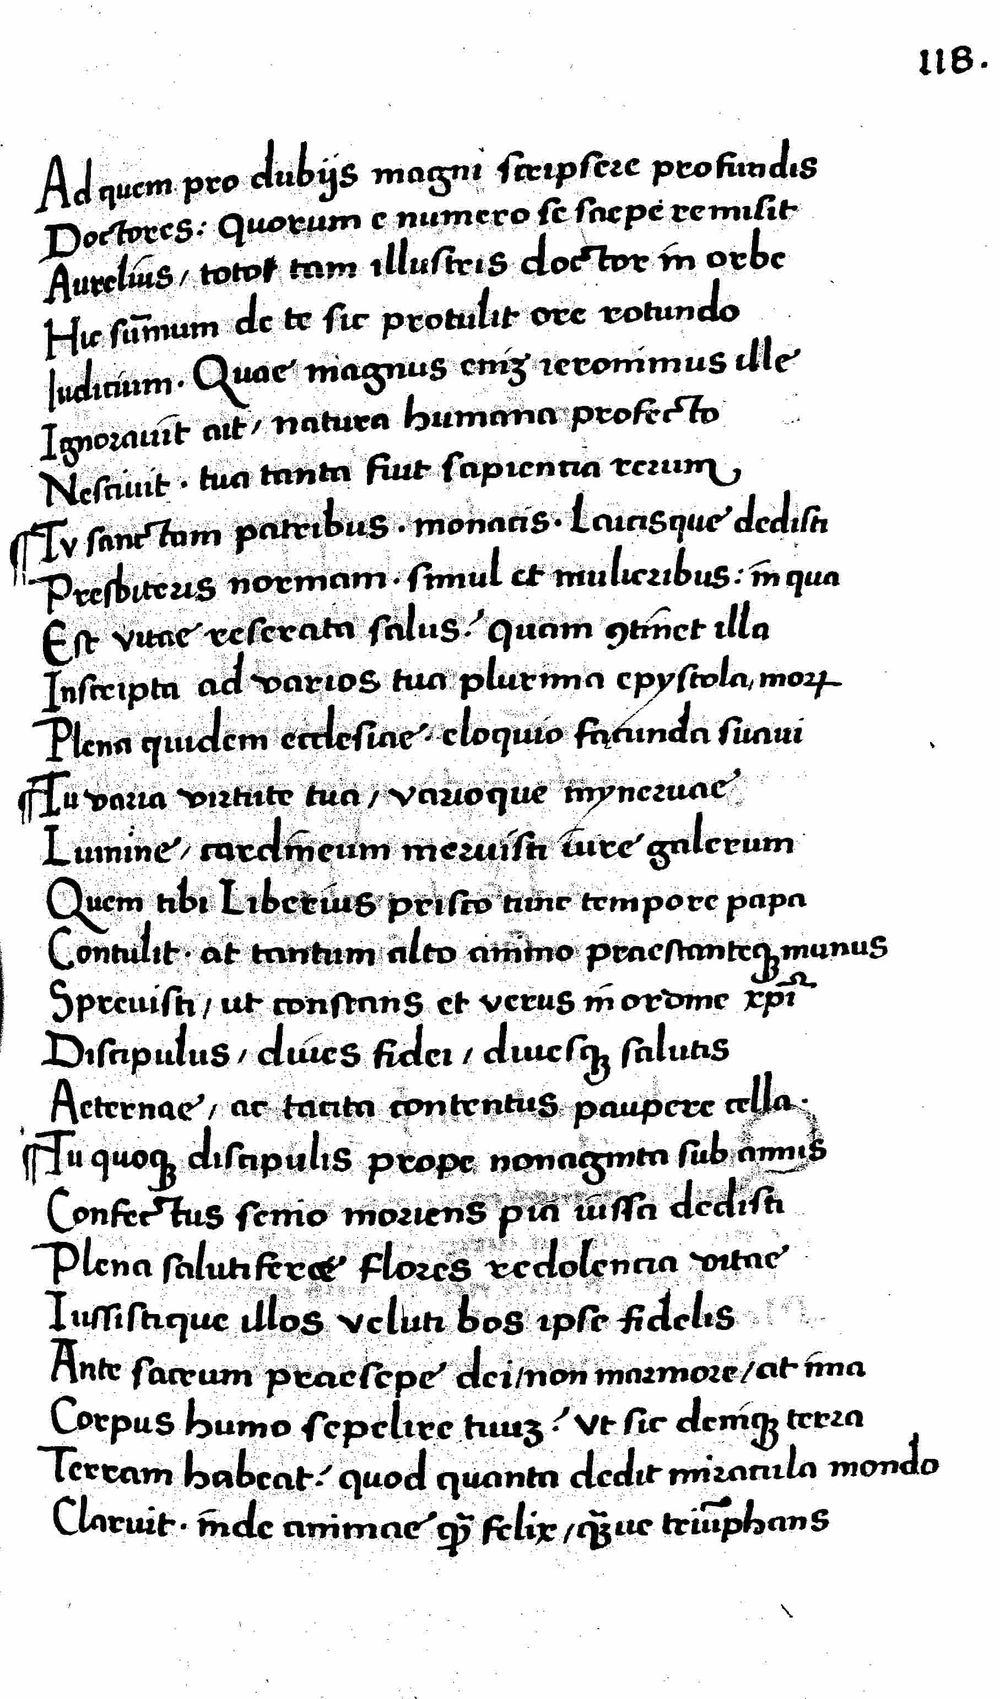 118.
Ad quem pro dubijs magni scripsere profundis
Doctores: quorum e numero se saepe remisit
Aurelius / toto tam illustris doctor in orbe
Hic sum̄mum de te sic protulit ore rotundo
Iudicium · Quae magnus eniꝫ ieronimus ille
Ignorauit ait / natura humana profecto
Nesciuit · tua tanta fiut sapientia rerum
¶ Tv sanctam patribus · monacis · Laicisque dedisti
Presbiteris normam · simul et mulieribus: in qua
Est vitae reserata salus: quam ꝯtinet illa
Inscripta ad varios tua plurima epystola / moꝝ
Plena quidem ecclesiae · eloquio facunda suaui
¶ Tu varia virtute tua / varioque mynervae
Lumine / cardineum meruisti iure galerum
Quem tibi Liberius prisco tunc tempore papa
Contulit · at tantum alto animo praestanteqꝫ munus
Spreuisti / ut constans et verus in ordine xp̄i
Discipulus / diues fidei / diuesqꝫ salutis
Aeternae / ac tacita contentus paupere cella ·
¶ Tu quoqꝫ discipulis prope nonaginta sub annis
Confectus senio moriens pia iussa dedisti
Plena salutiferae flores redolentia vitae
Iussistique illos veluti bos ipse fidelis
Ante sacrum praesepe dei / non marmore / at ima
Corpus humo sepelire tuuꝫ: vt sic deniqꝫ terra
Terram habeat: quod quanta dedit miracula mondo
Claruit · inde animae qꝫ̄ felix / qꝫ̄ue triūphans